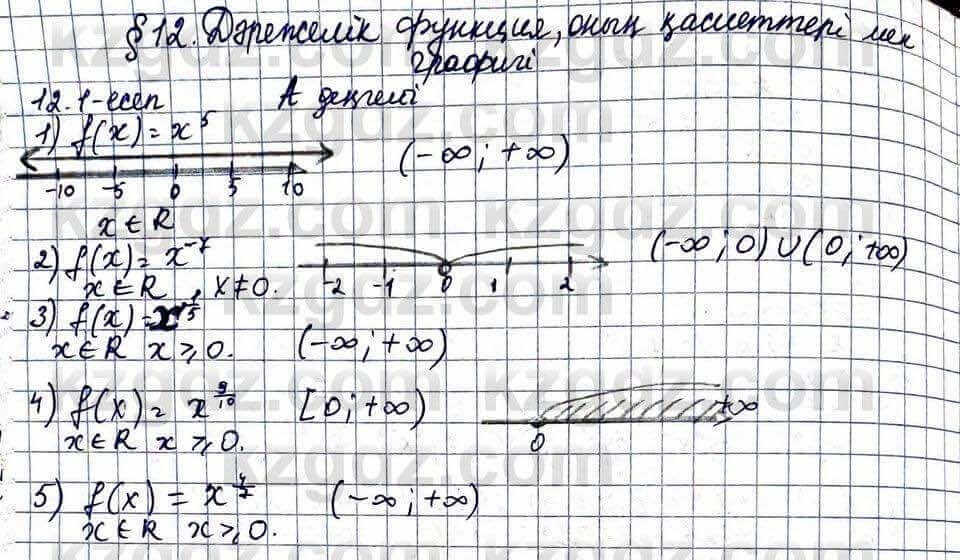 §12. Дәрежелік функция, оның қасиеттері мен
графигі
12.1-есеп А деңгейі
1) f(x) = x^5 (-∞; +∞)
-10 -5 0 5 10
x ∈ R
2) f(x) = x^-7 (-∞; 0) ∪ (0; +∞)
x ∈ R, x ≠ 0. -2 -1 0 1 2
3) f(x) = x^1/5
x ∈ R x ⩾ 0. (-∞; +∞)
4) f(x) = x^9/10 [0; +∞) +∞
x ∈ R x ⩾ 0. 0
5) f(x) = (-∞; +∞)
x ∈ R x ⩾ 0.
kzgdz.com